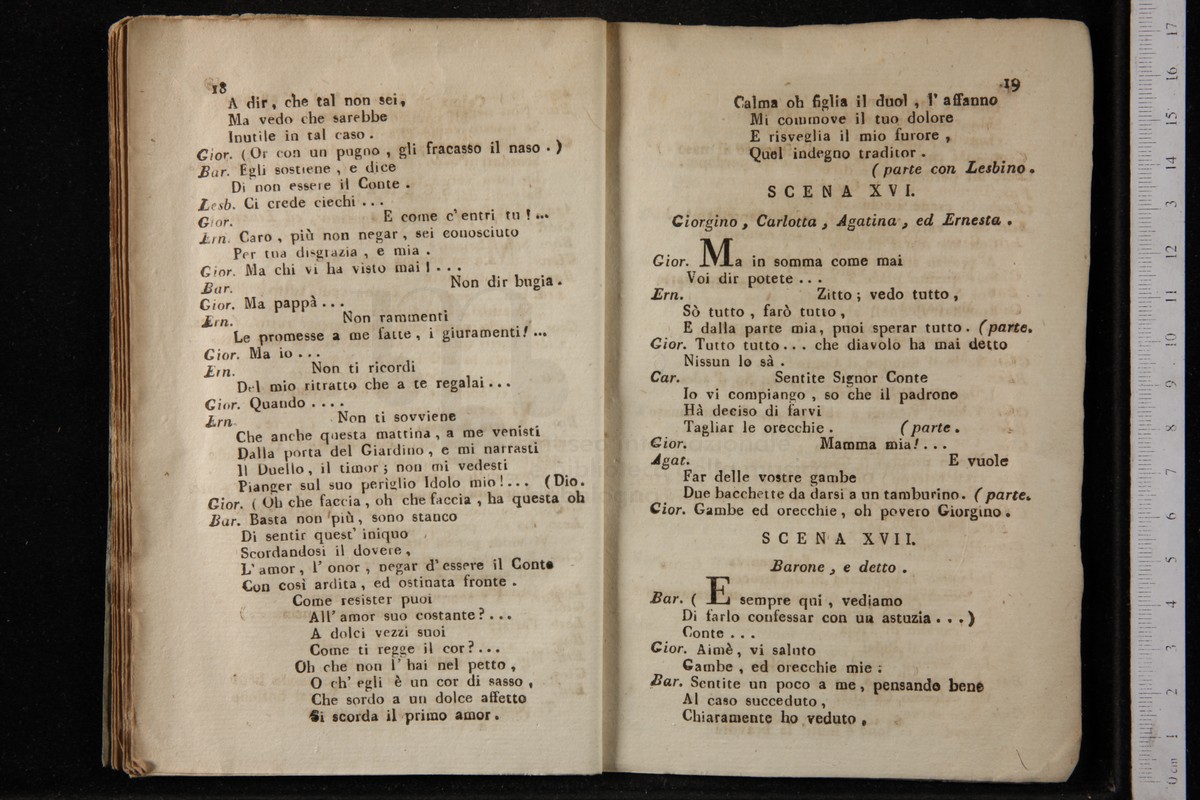 18
A dir, che tal non sei,
Ma vedo che sarebbe
Inutile in tal caso .
Gior. (Or con un pugno , gli fracasso il naso . )
Bar. Egli sostiene , e dice
Di non essere il Conte .
Lesb. Ci crede ciechi . . .
Gior. E come c' entri tu ! ...
Ern. Caro , più non negar , sei conosciuto
Per tua disgrazia , e mia .
Gior. Ma chi vi ha visto mai ! . . .
Bar. Non dir bugia .
Gior. Ma pappà . . .
Ern. Non rammenti
Le promesse a me fatte , i giuramenti! ...
Gior. Ma io . . .
Ern. Non ti ricordi
Del mio ritratto che a te regalai . . .
Gior. Quando . . . .
Ern. Non ti sovviene
Che anche questa mattina , a me venisti
Dalla porta del Giardino , e mi narrasti
Il Duello , il timor ; non mi vedesti
Pianger sul suo periglio Idolo mio ! . . . (Dio.
Gior. ( Oh che faccia , oh che faccia , ha questa oh
Bar. Basta non più , sono stanco
Di sentir quest' iniquo
Scordandosi il dovere ,
L' amor , l' onor , negar d' essere il Conte
Con così ardita , ed ostinata fronte .
Come resister puoi
All' amor suo costante ? . . .
A dolci vezzi suoi
Come ti regge il cor ? . . .
Oh che non l' hai nel petto ,
O ch' egli è un cor di sasso ,
Che sordo a un dolce affetto
Si scorda il primo amor .
19
Calma oh figlia il duol , l' affanno
Mi commove il tuo dolore
E risveglia il mio furore ,
Quel indegno traditor .
( parte con Lesbino .
SCENA XVI.
Giorgino , Carlotta , Agatina , ed Ernesta .
Gior. Ma in somma come mai
Voi dir potete . . .
Ern. Zitto ; vedo tutto ,
Sò tutto , farò tutto ,
E dalla parte mia, puoi sperar tutto . (parte.
Gior. Tutto tutto . . . che diavolo ha mai detto
Nissun lo sà .
Car. Sentite Signor Conte
Io vi compiango , so che il padrone
Hà deciso di farvi
Tagliar le orecchie . (parte .
Gior. Mamma mia! . . .
Agat. E vuole
Far delle vostre gambe
Due bacchette da darsi a un tamburino. (parte.
Gior. Gambe ed orecchie , oh povero Giorgino .
SCENA XVII.
Barone , e detto .
Bar. ( E sempre qui , vediamo
Di farlo confessar con un astuzia . . . )
Conte . . .
Gior. Aimè , vi saluto
Gambe , ed orecchie mie :
Bar. Sentite un poco a me , pensando bene
Al caso succeduto ,
Chiaramente ho veduto ,
0 cm 1 2 3 4 5 6 7 8 9 10 11 12 13 14 15 16 17